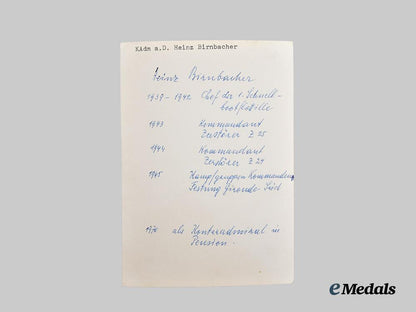 KAdm a.D. Heinz Birnbacher
Heinz Birnbacher
1939-1942 Chef der 1. Schnell-
bootflottille
1943 Kommandant
Zerstörer Z 25
1944 Kommandant
Zerstörer Z 24
1945 Kampfgruppen Kommandeur
Festung Gironde Süd
als Konteradmiral in
Pension.
eMedals